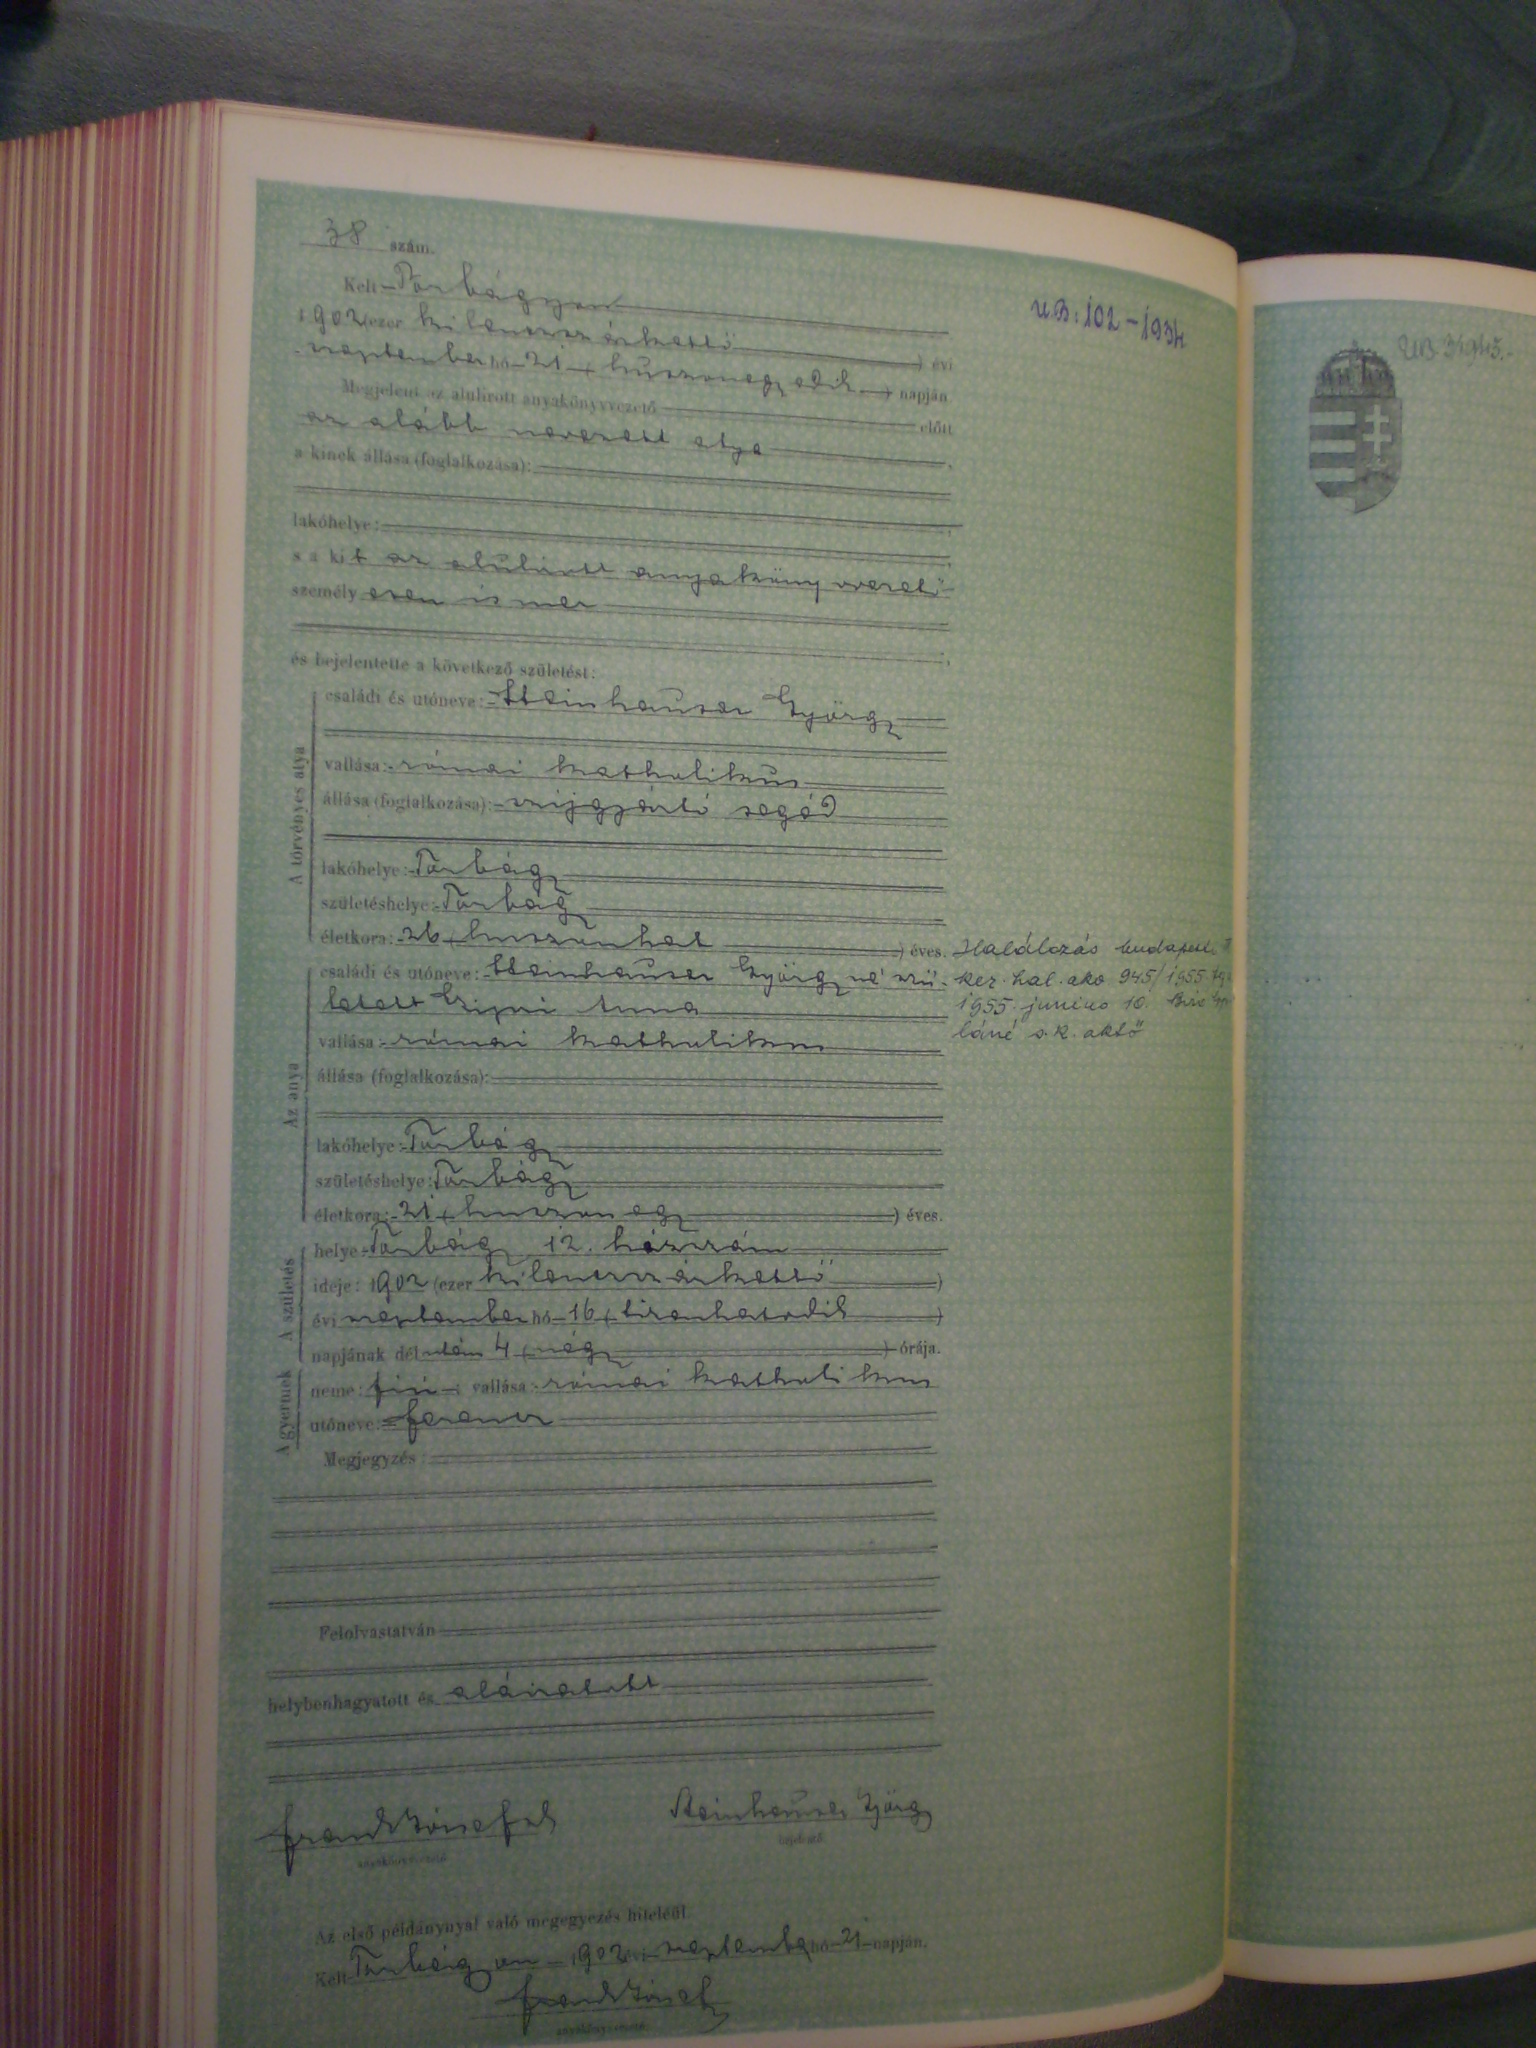 38 szám.
UB: 102 - 1934
UB. 3/945.
Kelt Torbágyon
1902 (ezer kilenczszázkettő) évi
szeptember hó 21 (huszonegyedik) napján
Megjelent az alulirott anyakönyvvezető előtt
az alább nevezett atya,
a kinek állása (foglalkozása):
lakóhelye:
s a kit az alulirott anyakönyvvezető
személyesen ismer
és bejelentette a következő születést:
A törvényes atya
családi és utóneve: Steinhauser György
vallása: római katholikus
állása (foglalkozása): szijgyártó segéd
lakóhelye: Torbágy
születéshelye: Torbágy
életkora: 26 (huszonhat) éves.
Az anya
családi és utóneve: Steinhauser Györgyné szü-
letett Czipri Anna
vallása: római katholikus
állása (foglalkozása):
lakóhelye: Torbágy
születéshelye: Torbágy
életkora: 21 (huszonegy) éves.
Halálozás budapest
ker. hal. ako 945/1955
1955. junius 10.
láné s.k. aktő
A születés
helye: Torbágy 12. házszám
ideje: 1902 (ezer kilenczszázkettő)
évi szeptember hó 16 (tizenhatodik)
napjának délután 4 (négy) órája.
A gyermek
neme: fiú; vallása: római katholikus
utóneve: Ferencz
Megjegyzés:
Felolvastatván
helybenhagyatott és aláiratott
Frank József h Steinhauser György
anyakönyvvezető bejelentő
Az első példánynyal való megegyezés hiteléül.
Kelt Torbágyon 1902 évi szeptember hó 21 napján.
Frank József
anyakönyvvezető